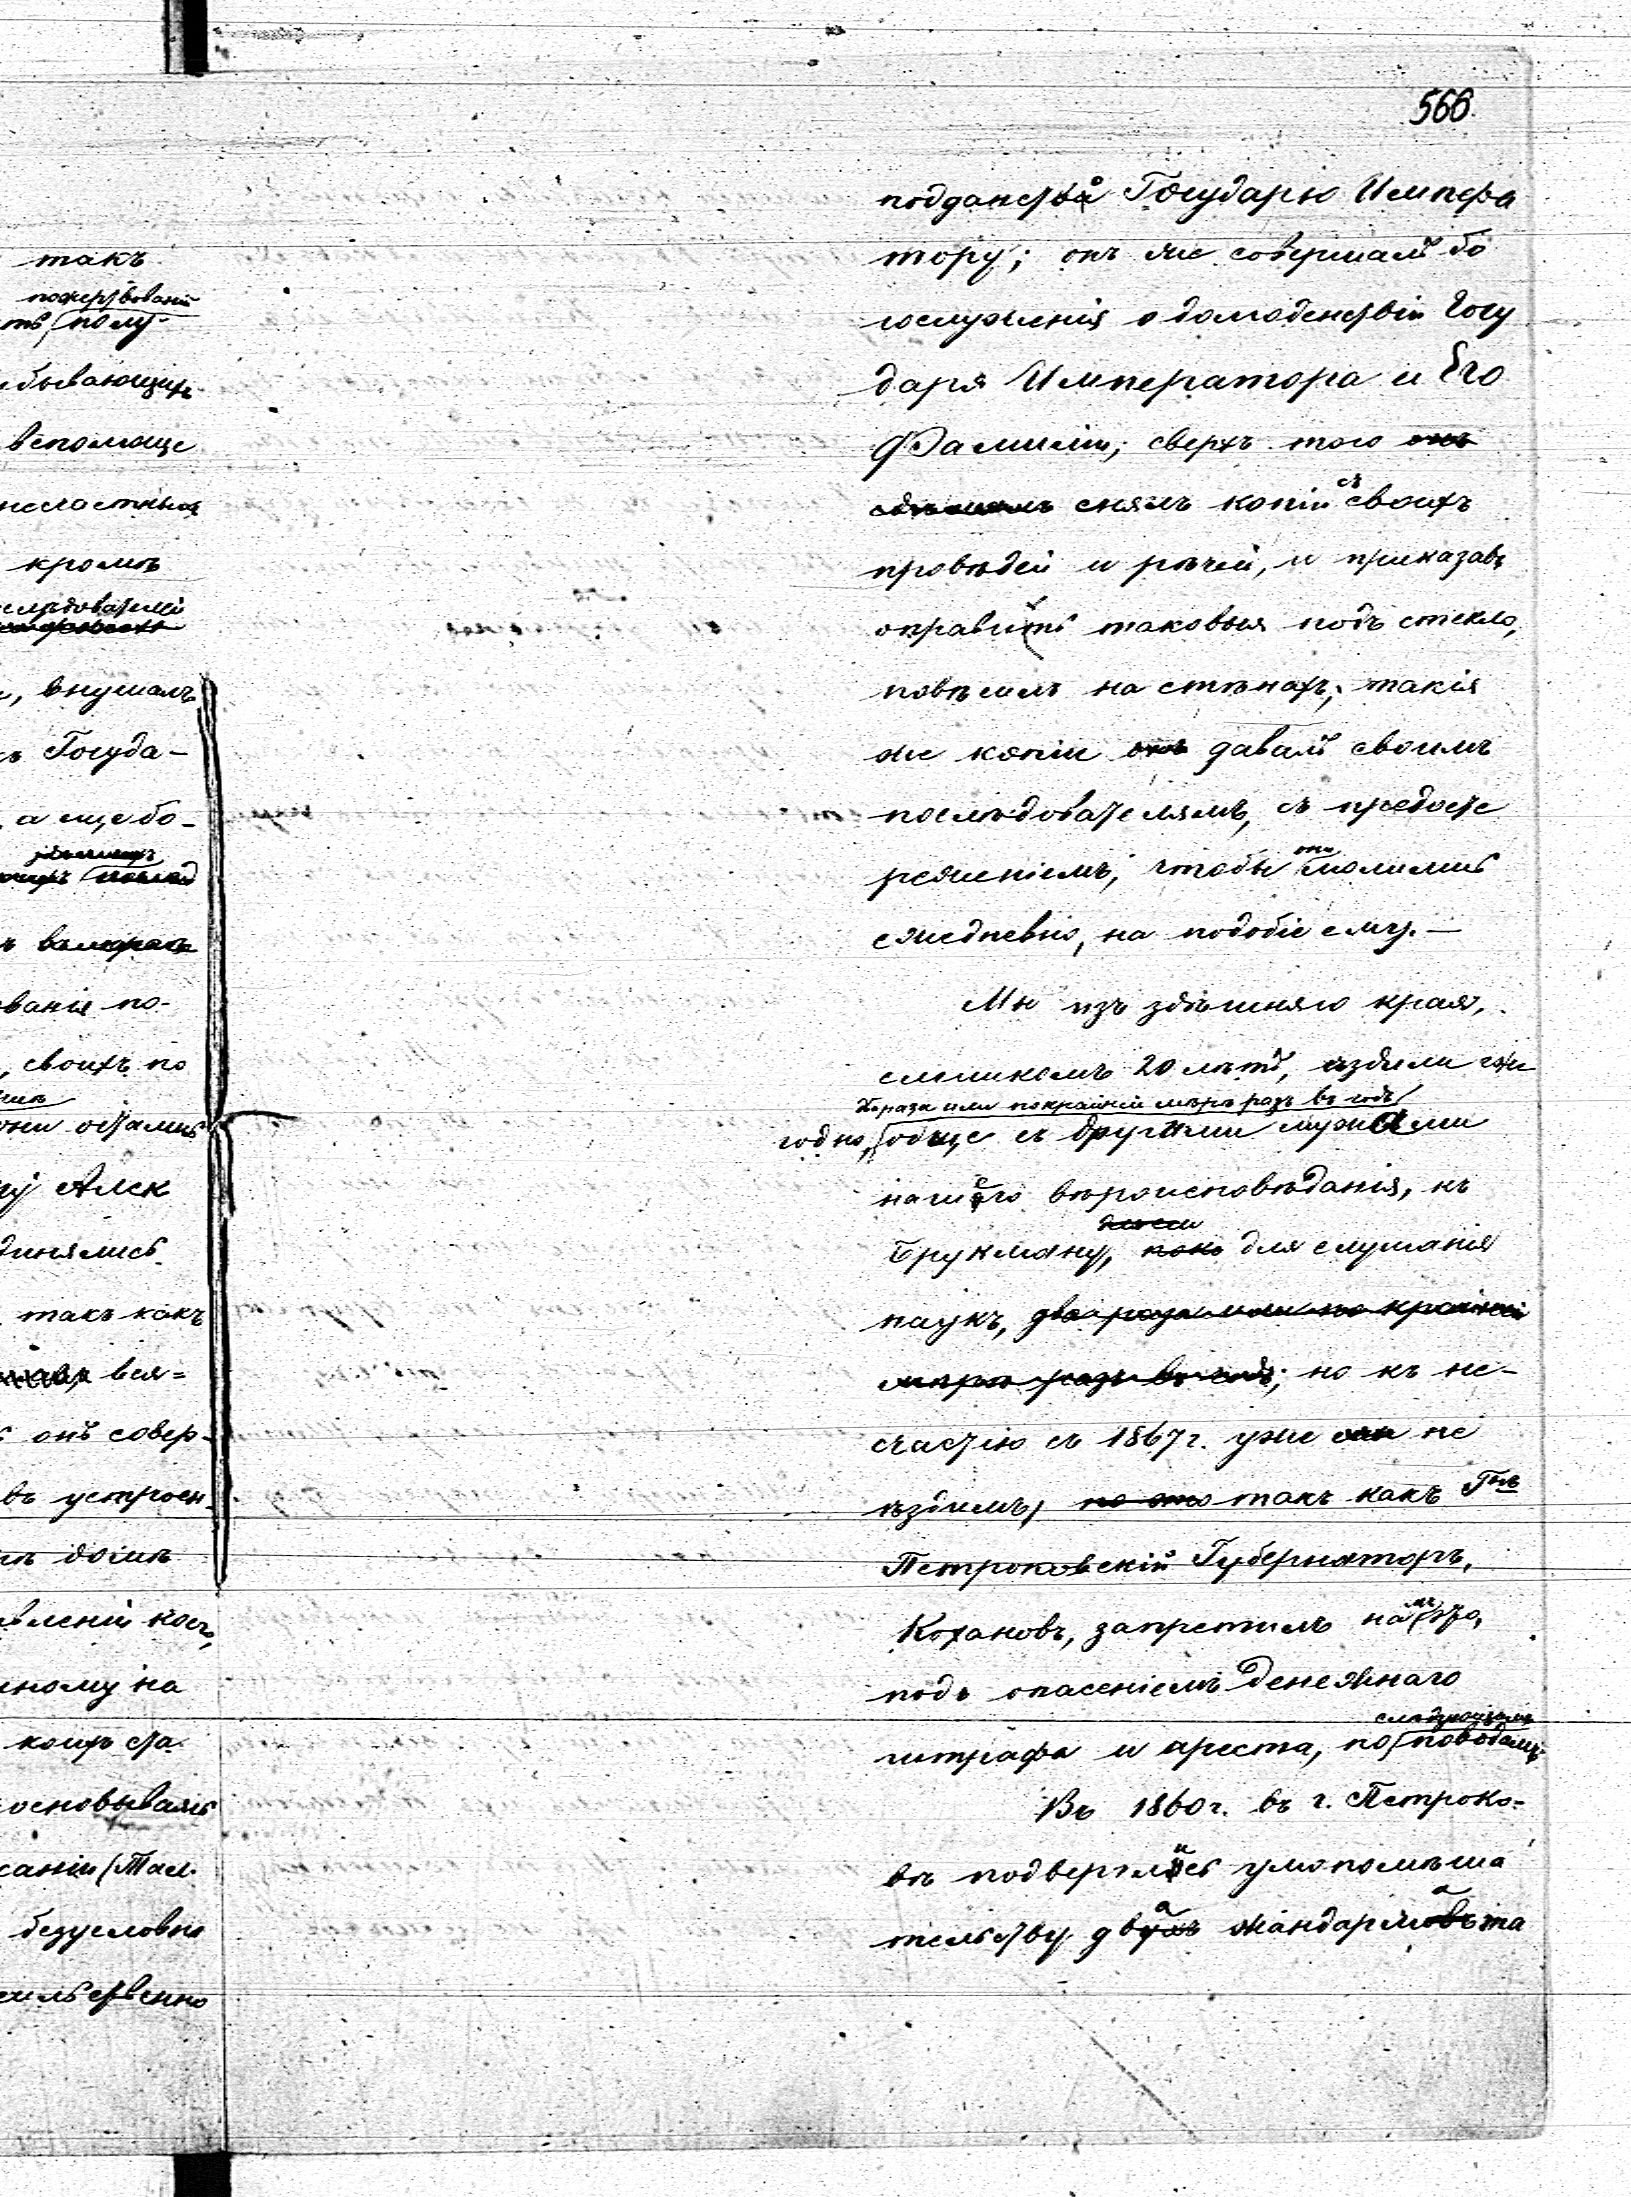 566.
подданства Государю Импера
тору; онъ же совершалъ бо
гослуженія о долгоденствіи Госу
даря Императора и Его
Фамиліи; сверхъ того онъ
снялъ копіи съ своихъ
проповѣдей и рѣчей, и приказавъ
оправить таковыя подъ стекло,
повѣсилъ на стѣнахъ; такія
же копіи онъ давалъ своимъ
послѣдователямъ, съ предосте
реженіемъ, чтобы они молились
ежедневно, на подобіе ему. —
Мы изъ здѣшняго края,
слишкомъ 20 лѣтъ, ѣздили еже
два раза или покрайней мѣрѣ разъ въ годъ
годно, обще съ другими мужами
нашего вѣроисповѣданія, къ
Брукману, для слушанія
наукъ, два раза или по крайней
мѣрѣ разъ въ годъ; но къ не-
счастію съ 1867 г. уже не
ѣздимъ, но это такъ какъ Гнъ
Петроковскій Губернаторъ,
Кохановъ, запретилъ намъ это,
подъ опасеніемъ денежнаго
штрафа и ареста, по слѣдующимъ поводамъ:
Въ 1860 г. въ г. Петроко-
вѣ подверглись умопомѣша
тельству два жандарма та
такъ
пожертвованій
полу-
бывающихъ
вспомоще
несчастныя
кромѣ
слѣдователей
, внушалъ
Госуда-
а еще бо-
ванія по-
, своихъ по
они остались
Алек
динялись
такъ какъ
вся=
онъ совер-
въ устроен-
домѣ
вленій кос,
ному на
коихъ ста
основываясь
саніи (Тал.
безусловно
сильственно